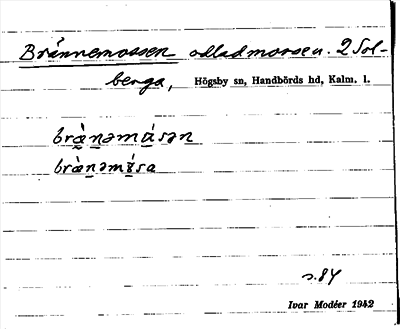 Brännemossen odlad mosse u. 2 Sol-
berga, Högsby sn, Handbörds hd, Kalm. l.
bræ̀nəmåsən
bræ̀nəmɤ́sa
s. 84
Ivar Modéer 1942